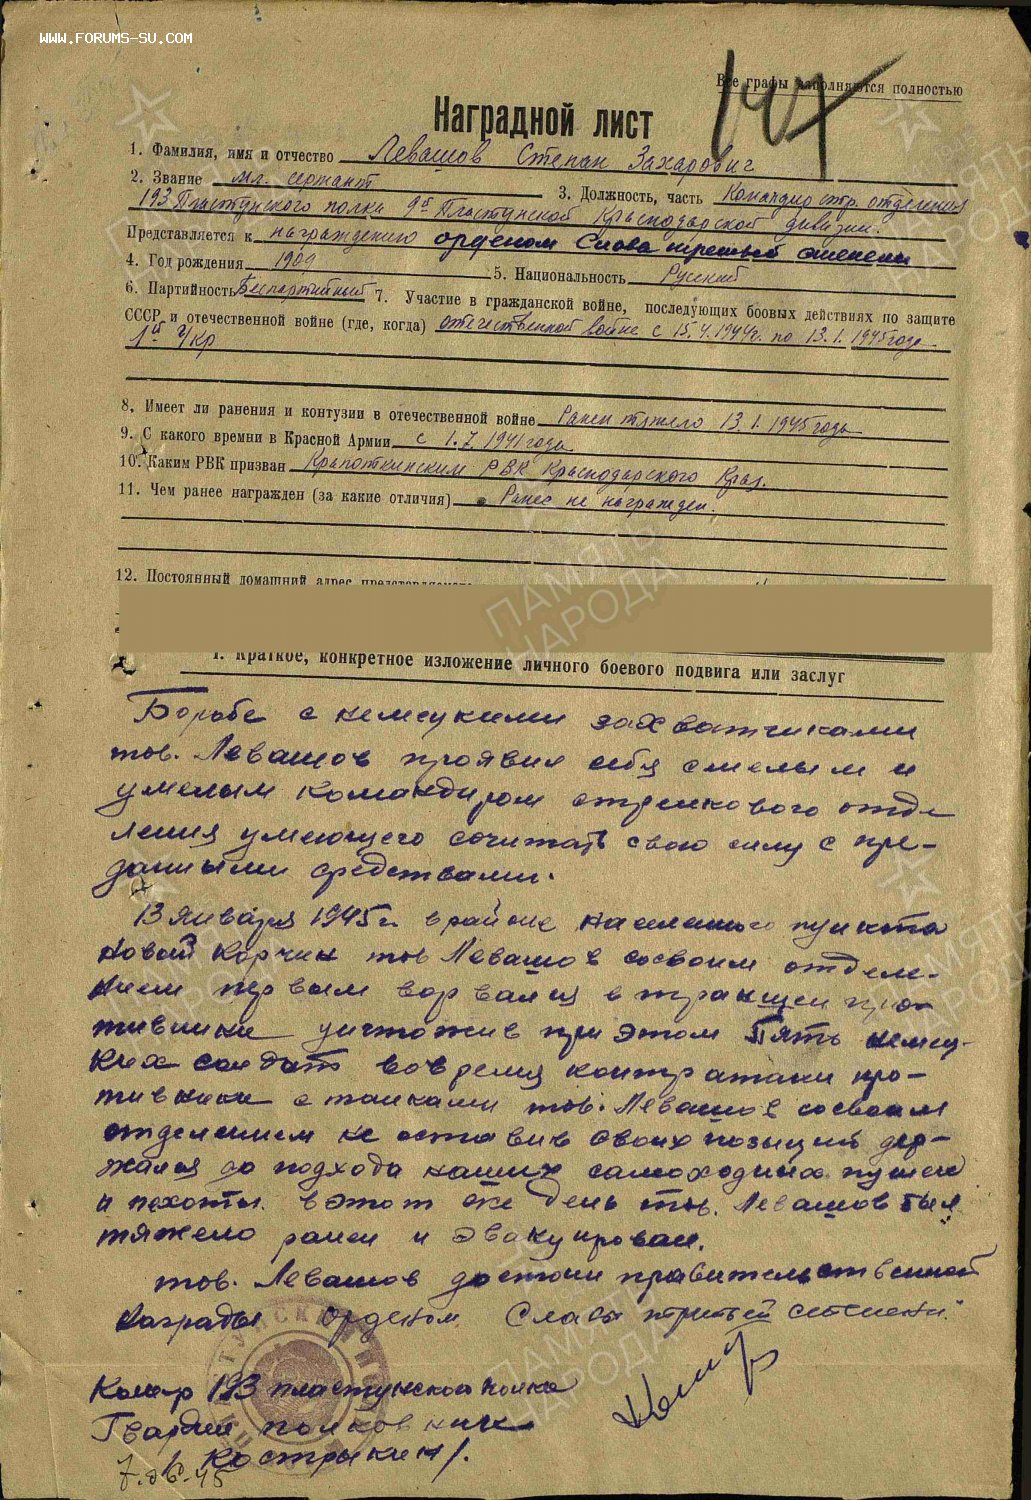 WWW.FORUMS-SU.COM
Все графы заполняются полностью
147
Наградной лист
1. Фамилия, имя и отчество Левашов Степан Захарович
2. Звание мл. сержант 3. Должность, часть Командир стр. отделения
193 Пластунского полка 9й Пластунской Краснодарской дивизии.
Представляется к награждению орденом Слава третьей степени
4. Год рождения 1909 5. Национальность Русский
6. Партийность Беспартийный 7. Участие в гражданской войне, последующих боевых действиях по защите
СССР и отечественной войне (где, когда) отечественной войне с 15.4.1944г. по 13.1.1945 года
1й Укр
8. Имеет ли ранения и контузии в отечественной войне Ранен тяжело 13.1.1945 года
9. С какого времни в Красной Армии с 1.7.1941 года
10. Каким РВК призван Крапоткинским РВК Краснодарского Края.
11. Чем ранее награжден (за какие отличия) Ранее не награжден.
12. Постоянный домашний адрес
1. Краткое, конкретное изложение личного боевого подвига или заслуг
Борьбе с немецкими захватчиками
тов. Левашов проявил себя смелым и
умелым командиром стрелкового отде
ления умеющего сочитать свою силу с пре-
данными средствами.
13 января 1945 г. в районе населеного пункта
Новый Корчин тов Левашов со своим отделе-
нием первым ворвался в траншеи про
тивника уничтожив при этом Пять немец-
ких солдат вовремя контратаки про-
тивника с танками тов. Левашов со своим
отделением не оставив своих позиций дер-
жался до подхода наших самоходных пушек
и пехоты. в этот же день тов. Левашов был
тяжело ранен и эвакуирован.
тов. Левашов достоин правительственной
Награды Орденом Славы третьей степени.
Ком-р 193 пластунского полка
Гвардии полковник
/ Кострыкин /.
7.06.45
ПАМЯТЬ
НАРОДА